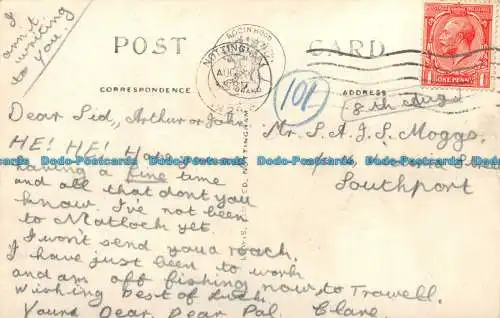 I
am t
writing
to you.
POST CARD
CORRESPONDENCE
ADDRESS
NOTTINGHAM
ONE PENNY
101.
8th Aug
Dear Sid, Arthur or John,
HE! HE! HE!
having a fine time
and all that dont you
know. I've not been
to Matlock yet.
I won't send you a roach.
I have just been to work
and am off fishing now, to Trowell.
Wishing best of luck,
Yours Dear Dear Pal. Clare.
Mr. S.A.J.S. Moggs,
Southport
Dodo-Postcards Dodo-Postcards Dodo-Postcards